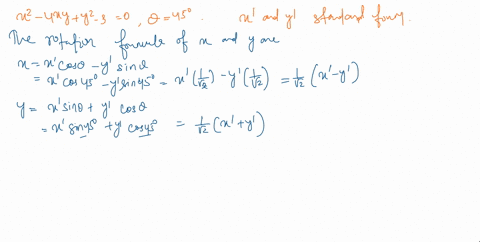 x² - 4xy + y² - 3 = 0 , θ = 45° . x' and y' standard form
The rotation formula of x and y are
x = x' cosθ - y' sinθ
= x' cos45° - y' sin45° = x' (1/√2) - y' (1/√2) = 1/√2 (x' - y')
y = x' sinθ + y' cosθ
= x' sin45° + y' cos45° = 1/√2 (x' + y')